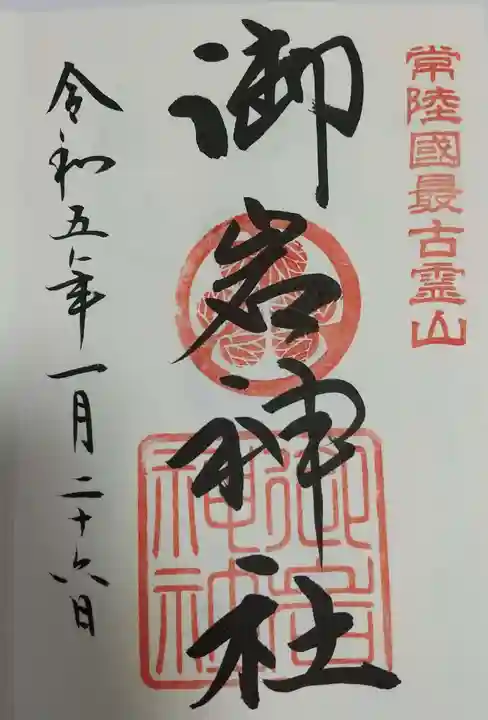 常陸國最古霊山
御岩神社
御岩
神社
令和五年一月二十六日